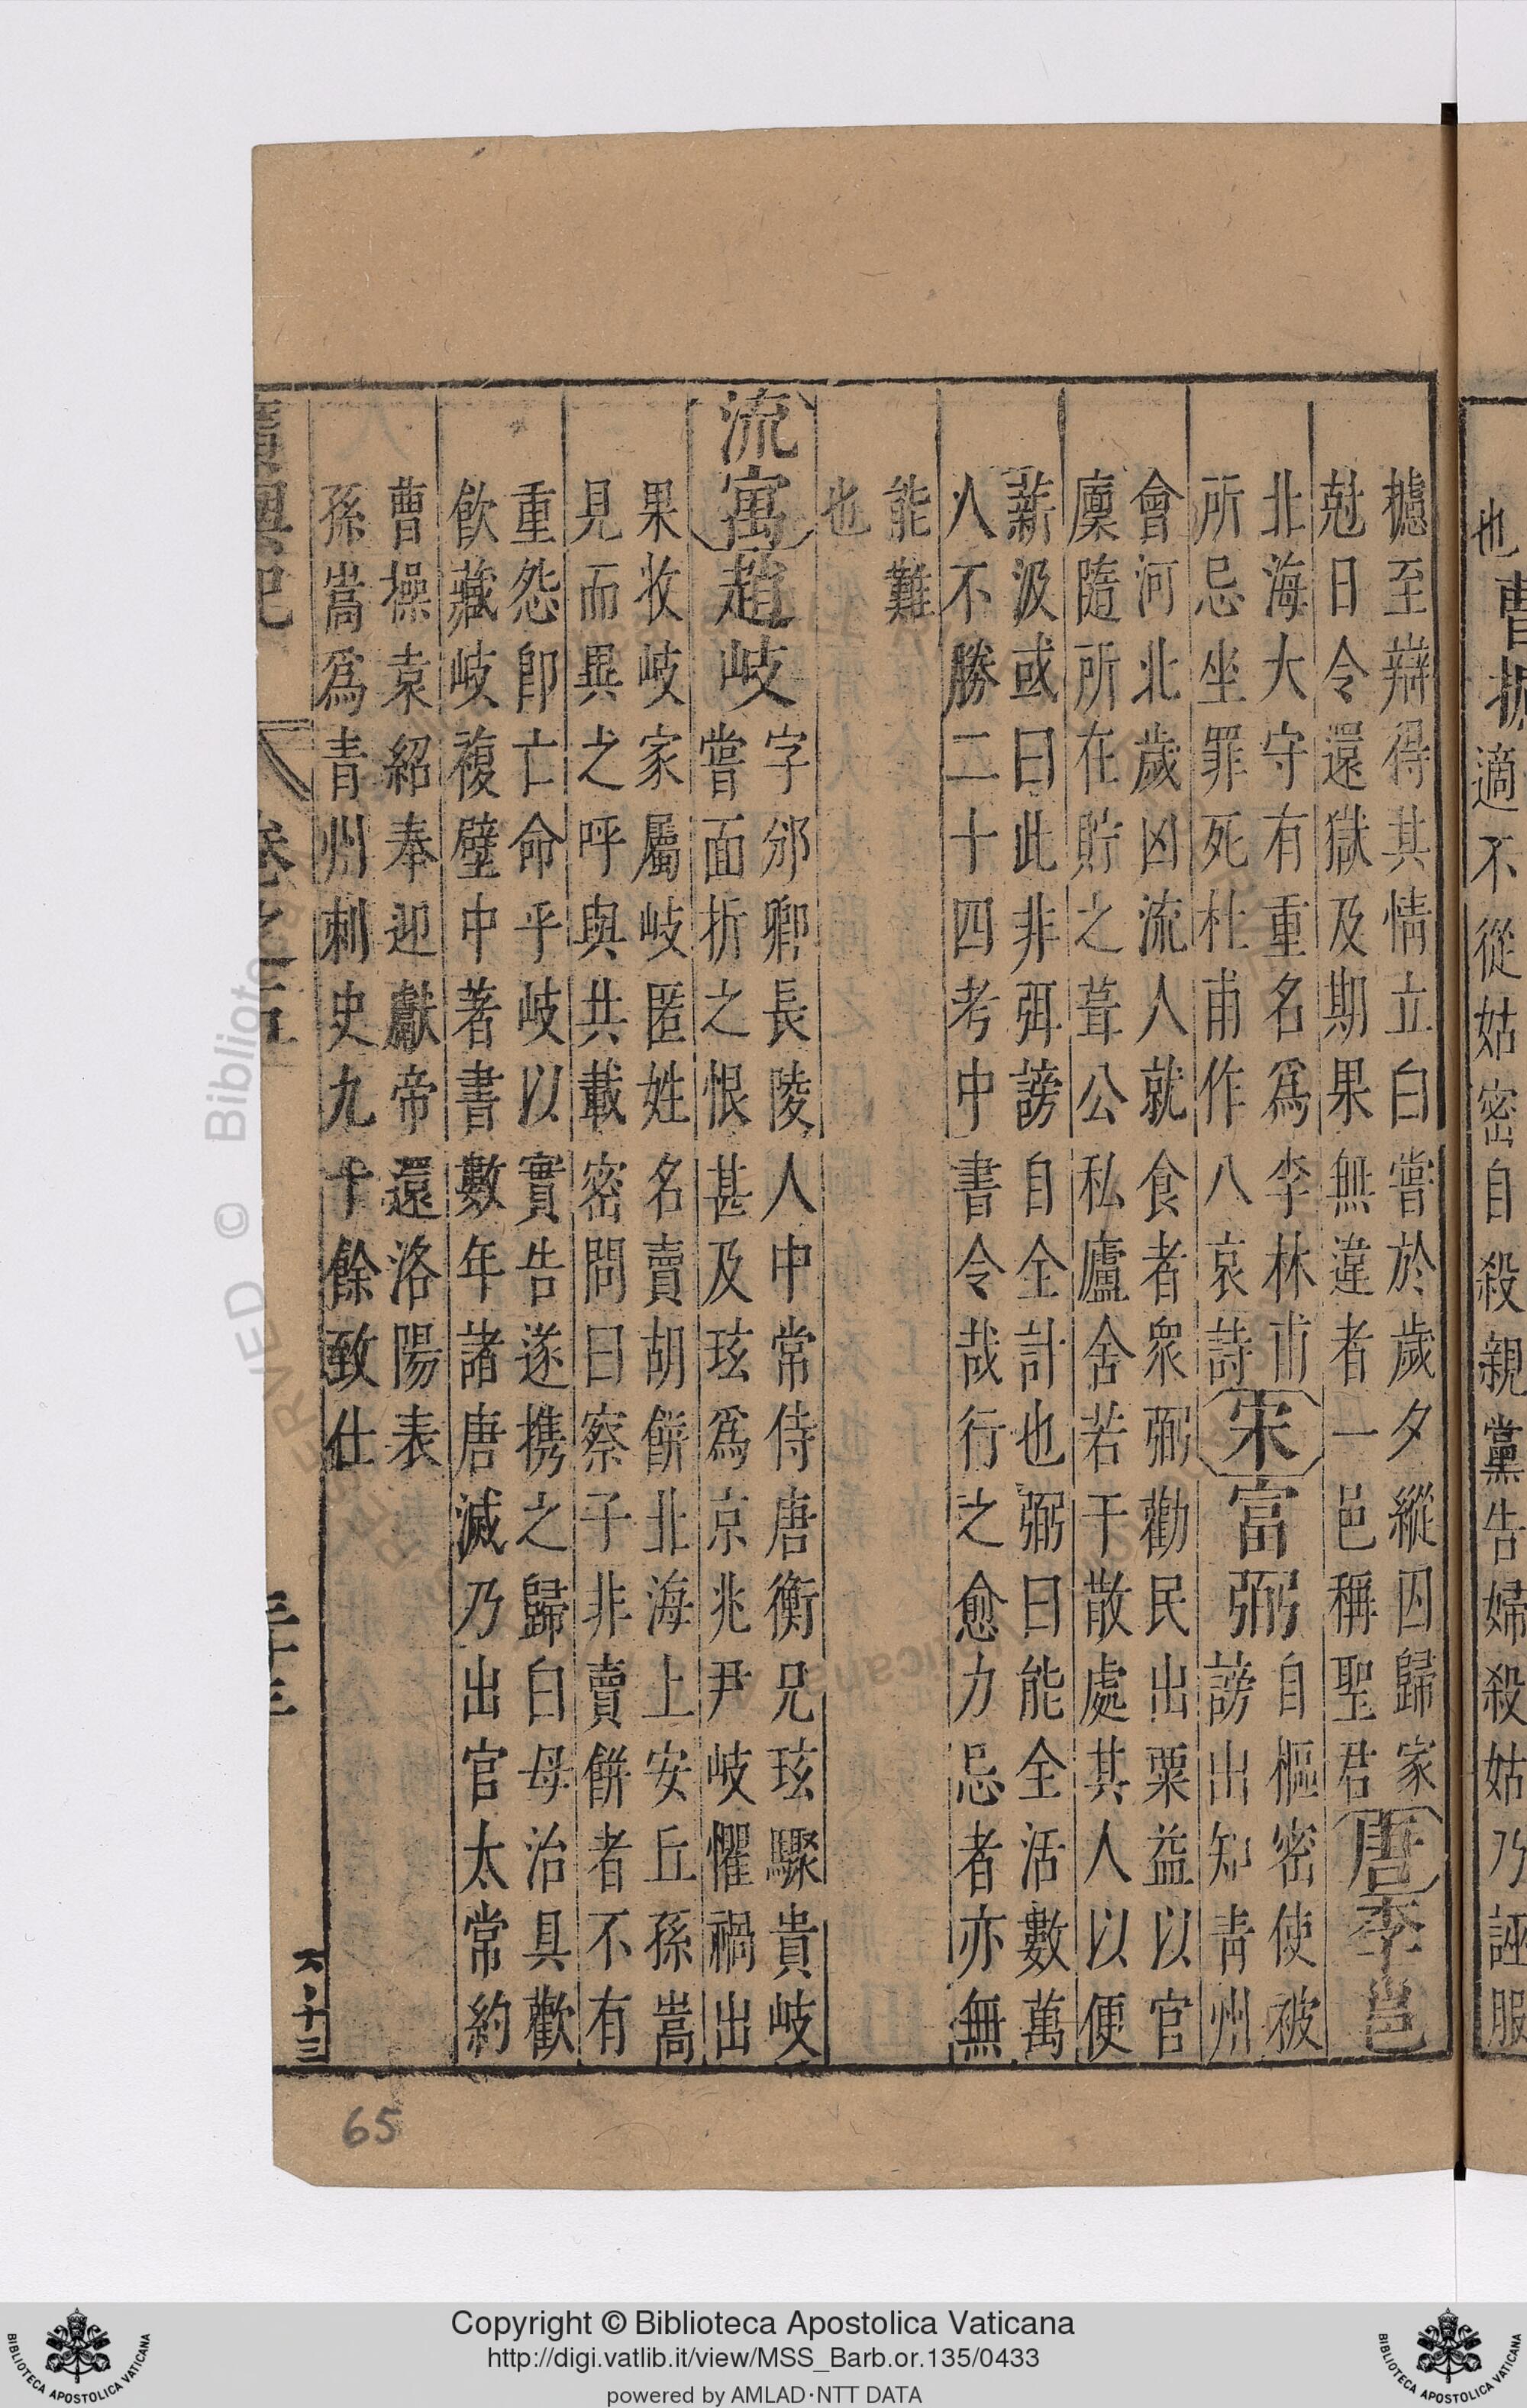 適不從姑密自殺親黨告婦殺姑乃誣服
攄至辯得其情立白嘗於歲夕縱囚歸家
尅日令還獄及期果無違者一邑稱聖君
唐李邕
北海大守有重名爲李林甫
所忌坐罪死杜甫作八哀詩
宋富弼
自樞密使被
謗出知青州
會河北歲凶流人就食者衆弼勸民出粟益以官
廩隨所在貯之葺公私廬舍若干散處其人以便
薪汲或曰此非弭謗自全計也弼曰能全活數萬
人不勝二十四考中書令哉行之愈力忌者亦無
能難
也
流寓趙岐
字邠卿長陵人中常侍唐衡兄玹驟貴岐
嘗面折之恨甚及玹爲京兆尹岐懼禍出
果收岐家屬岐匿姓名賣胡餅北海上安丘孫嵩
見而異之呼與共載密問曰察子非賣餅者不有
重怨卽亡命乎岐以實告遂携之歸白母治具歡
飲藏岐複壁中著書數年諸唐滅乃出官太常約
曹操袁紹奉迎獻帝還洛陽表
孫嵩爲青州刺史九十餘致仕
65
Copyright © Biblioteca Apostolica Vaticana
http://digi.vatlib.it/view/MSS_Barb.or.135/0433
powered by AMLAD·NTT DATA
BIBLIOTECA APOSTOLICA VATICANA
BIBLIOTECA APOSTOLICA VATICANA